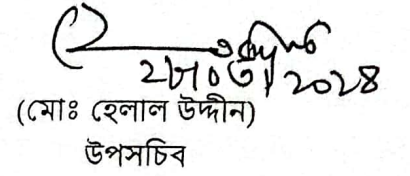 ২৮।০৩।২০২৪
(মোঃ হেলাল উদ্দীন)
উপসচিব